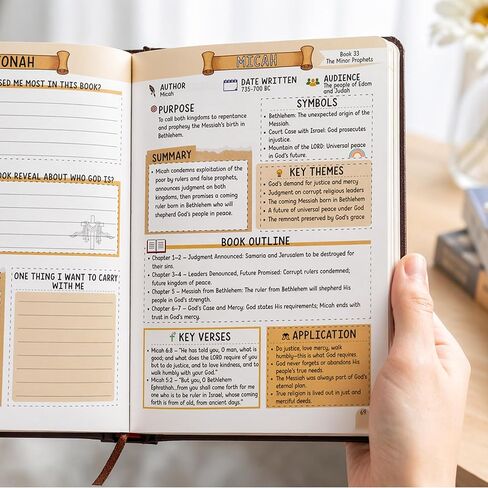 ONAH
SED ME MOST IN THIS BOOK?
OOK REVEAL ABOUT WHO GOD IS?
ONE THING I WANT TO CARRY
WITH ME
MICAH
Book 33
The Minor Prophets
AUTHOR
Micah
DATE WRITTEN
735-700 BC
AUDIENCE
The people of Edom
and Judah
PURPOSE
To call both kingdoms to repentance
and prophesy the Messiah's birth in
Bethlehem.
SYMBOLS
• Bethlehem: The unexpected origin of the
Messiah.
• Court Case with Israel: God prosecutes
injustice.
• Mountain of the LORD: Universal peace
in God's future.
SUMMARY
• Micah condemns exploitation of the
poor by rulers and false prophets,
announces judgment on both
kingdoms, then promises a coming
ruler born in Bethlehem who will
shepherd God's people in peace.
KEY THEMES
• God's demand for justice and mercy
• Judgment on corrupt religious leaders
• The coming Messiah born in Bethlehem
• A future of universal peace under God
• The remnant preserved by God's grace
BOOK OUTLINE
• Chapter 1–2 – Judgment Announced: Samaria and Jerusalem to be destroyed for
their sins.
• Chapter 3–4 – Leaders Denounced, Future Promised: Corrupt rulers condemned;
future kingdom of peace.
• Chapter 5 – Messiah from Bethlehem: The ruler from Bethlehem will shepherd His
people in God's strength.
• Chapter 6–7 – God's Case and Mercy: God states His requirements; Micah ends with
trust in God's mercy.
KEY VERSES
• Micah 6:8 – "He has told you, O man, what is
good; and what does the LORD require of you
but to do justice, and to love kindness, and to
walk humbly with your God."
• Micah 5:2 – "But you, O Bethlehem
Ephrathah...from you shall come forth for me
one who is to be ruler in Israel, whose coming
forth is from of old, from ancient days."
APPLICATION
• Do justice, love mercy, walk
humbly—this is what God requires.
• God never forgets or abandons His
people's true needs.
• The Messiah was always part of God's
eternal plan.
• True religion is lived out in just and
merciful deeds.
69